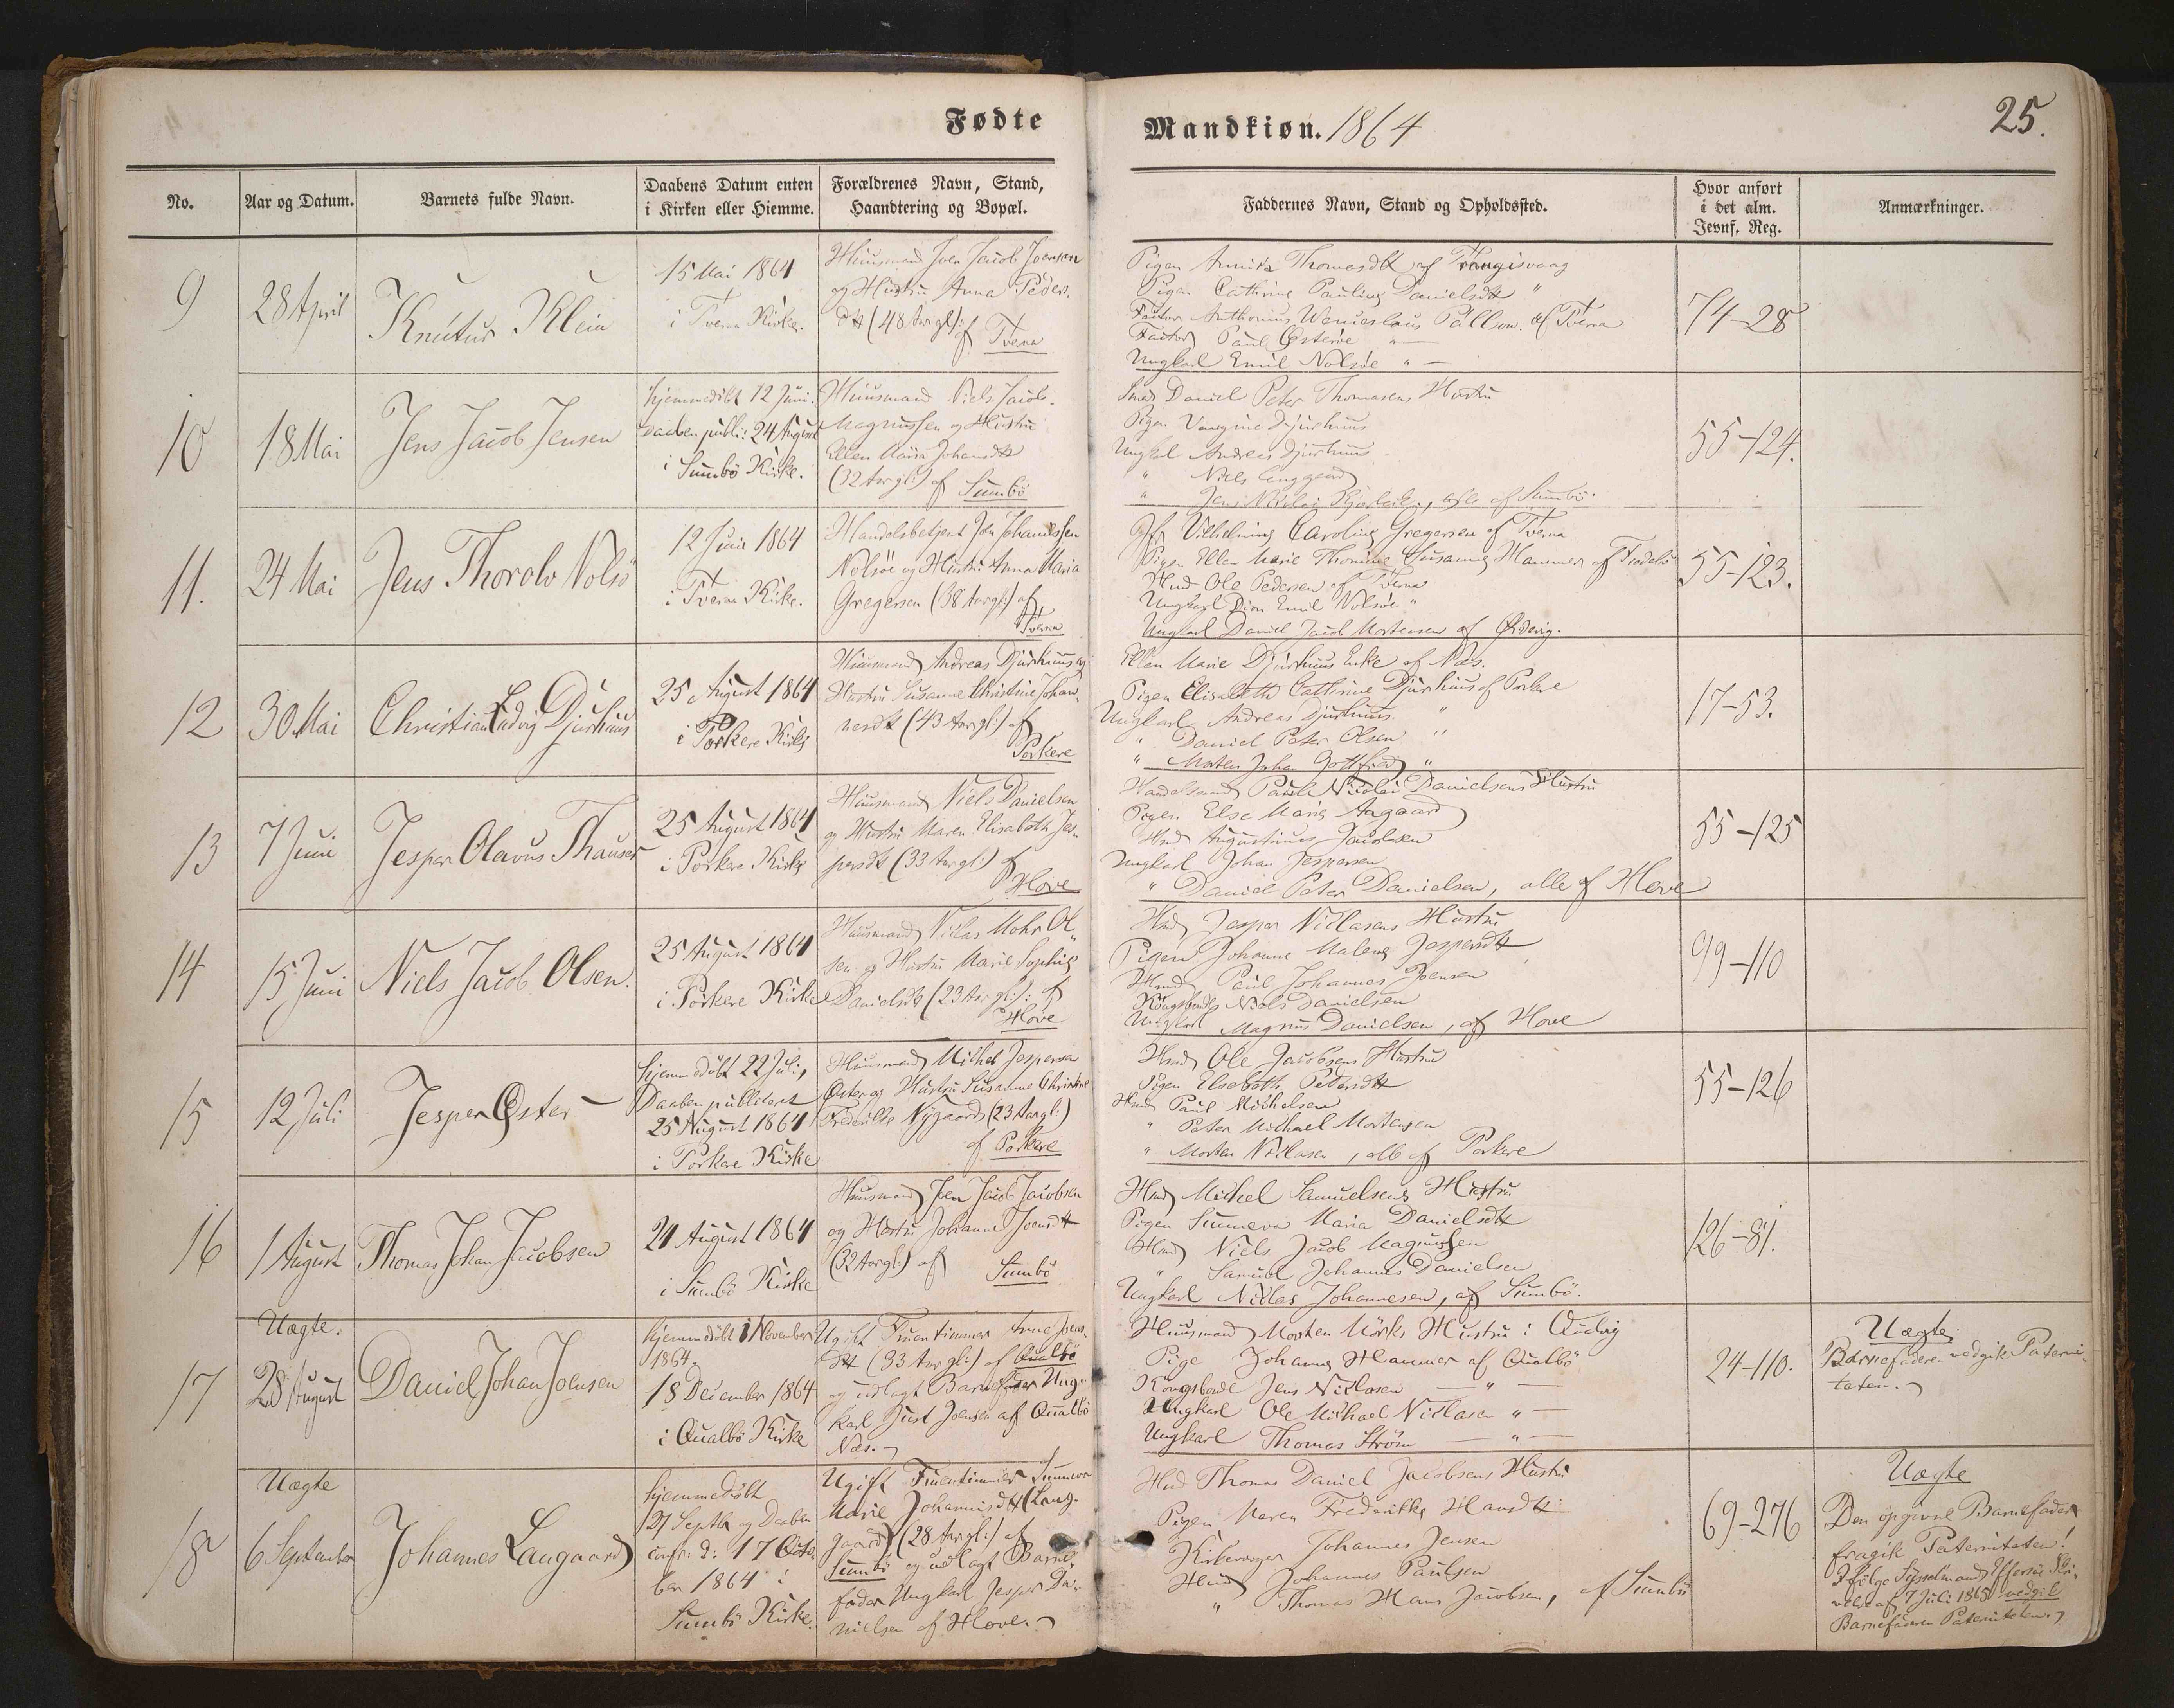 Fødte
Mandkiøn. 1864
25.
No.
Aar og Datum.
Barnets fulde Navn.
Daabens Datum enten
i Kirken eller Hiemme.
Forældrenes Navn, Stand,
Haandtering og Bopæl.
Faddernes Navn, Stand og Opholdssted.
Hvor anført
i det alm.
Jevnf. Reg.
Anmærkninger.
9
28 April
Knútur Klein
15 Mai 1864
i Tveraa Kirke.
Huusmand Joen Jacob Joensen
og Hustru Anna Peders-
dtt (48 Aar gl:) af
Tveraa
Pigen Annika Thomasdtt af Trangisvaag
Pigen Cathrine Pauline Danielsdtt "
Factor Anthonius Wenceslaus af Tveraa
Factor Paul Østerøe " —
Ungkarl Emil Nolsøe " —
74–28
10
18 Mai
Jens Jacob Jensen
hjemmedøbt 12 Juni.
Daaben publi: 24 August
i Sumbö Kirke.
Huusmand Niels Jacob
Magnussen og Hustru
Ellen Maria Johansdtt
(32 Aar gl:) af Sumbö
Daniel Peter Thomasens Hustru
Pigen Djurhuus
Ungkarl Andreas Djurhuus
" Niels
" Jens Nicolai , alle af Sumbö.
55–124.
11.
24 Mai
Jens Thorolv Nolsö
12 Juni 1864
i Tveraa Kirke.
Handelsbetjent Jón Johannessen
Nolsöe og Hustru Anna Maria
Gregersen (38 Aar gl:) af
Tveraa
Jfr Vilhelmine Caroline Gregersen af Tveraa
Pigen Ellen Marie Thomine Susanne Hammer af Frodebö
Hmd Ole Pedersen af Tveraa
Ungkarl Dion Emil Nolsöe "
Ungkarl Daniel Jacob Mortensen af Ørdevig.
55–123.
12
30 Mai
Christian Ludvig Djurhuus
25 August 1864
i Porkere Kirke
Huusmand Andreas Djurhuus og
Hustru Susanne Christine Johan-
nesdtt (43 Aar gl:) af
Porkere
Ellen Marie Djurhuus Enke af Næs.
Pigen Elisabeth Cathrine Djurhuus af Porkere
Ungkarl Andreas Djurhuus "
" Daniel Peter Olsen "
" Morten Johan Gottfred "
17–53.
13
7 Juni
Jesper Olavus Thauser
25 August 1864
i Porkere Kirke
Huusmand Niels Danielsen
og Hustru Maren Elisabeth Jes-
persdtt (33 Aar gl:) af
Hove
Handelsmand Poul Nicolai Danielsens Hustru
Pigen Else Maria Aagaard
Hmd Augustinus Jacobsen
Ungkarl Johan Jespersen
" Daniel Peter Danielsen, alle af Hove
55–125
14
15 Juni
Niels Jacob Olsen.
25 August 1864
i Porkere Kirke
Huusmand Niclas Mohr Ol-
sen og Hustru Marie Sophie
Danielsdtt (23 Aar gl:) af
Hove
Hmd Jesper Niclasens Hustru
Pigen Johanne Malene Jespersdtt
Hmd Paul Johannes Joensen
Kongsbonde Niels Danielsen
Ungkarl Magnus Danielsen, af Hove
99–110
15
12 Juli
Jesper Øster
hjemmedøbt 22 Juli,
Daaben publiceret
25 August 1864
i Porkere Kirke
Huusmand Michel Jespersen
Øster og Hustru Susanne Christine
Frederikke Nygaard (23 Aar gl:)
af Porkere
Hmd Ole Jacobsens Hustru
Pigen Elsebeth Pedersdtt
Hmd Paul Michelsen
" Peter Michael Mortensen
" Morten Niclasen, alle af Porkere
55–126
16
1 August
Thomas Johan Jacobsen
21 August 1864
i Sumbö Kirke
Huusmand Joen Jacob Jacobsen
og Hustru Johanne Joensdtt
(32 Aar gl:) af Sumbö
Hmd Michel Samuelsens Hustru
Pigen Sunneva Maria Danielsdtt
Hmd Niels Jacob Magnussen
" Samuel Johannes Danielsen
Ungkarl Niclas Johannesen, af Sumbö.
126–81.
17
Uægte.
28 August
Daniel Johan Joensen
hjemmedøbt 1 November
1864.
18 December 1864
i Qualbö Kirke
Ugift Fruentimmer Anne Joens-
dtt (33 Aar gl:) af Qualbö
og udlagt Barnefader Ung-
karl Just Joensen af Qualbö
Næs.
Huusmand Morten Mörks Hustru i Qualvig
Pige Johanne Hammer af Qualbö
Kongsbonde Jens Niclasen — " —
Ungkarl Ole Michael Niclasen " —
Ungkarl Thomas Ström — " —
24–110.
Uægte.
Barnefaderen vedgik Paterni-
teten.
18
Uægte
6 September
Johannes Laugaard
hjemmedöbt
21 Septbr og Daaben
confr. d: 17 Octo-
ber 1864 i
Sumbö Kirke.
Ugift Fruentimmer Sunneva
Marie Johannisdtt (Lau-
gaard) (28 Aar gl:) af
Sumbö og udlagt Barne-
fader Ungkarl Jesper Da-
nielsen af Hove.
Hmd Thomas Daniel Jacobsens Hustru
Pigen Maren Frederikke Hansdtt
Kirkeværger Johannes Jensen
Hmd Johannes Paulsen
" Thomas Hans Jacobsen, af Sumbö
69–276
Uægte
Den opgivne Barnefader
fragik Paterniteten!
Ifølge Sysselmand Effersøe Skri-
velse af 7 Juli 1865 vedgik
Barnefaderen Paterniteten.